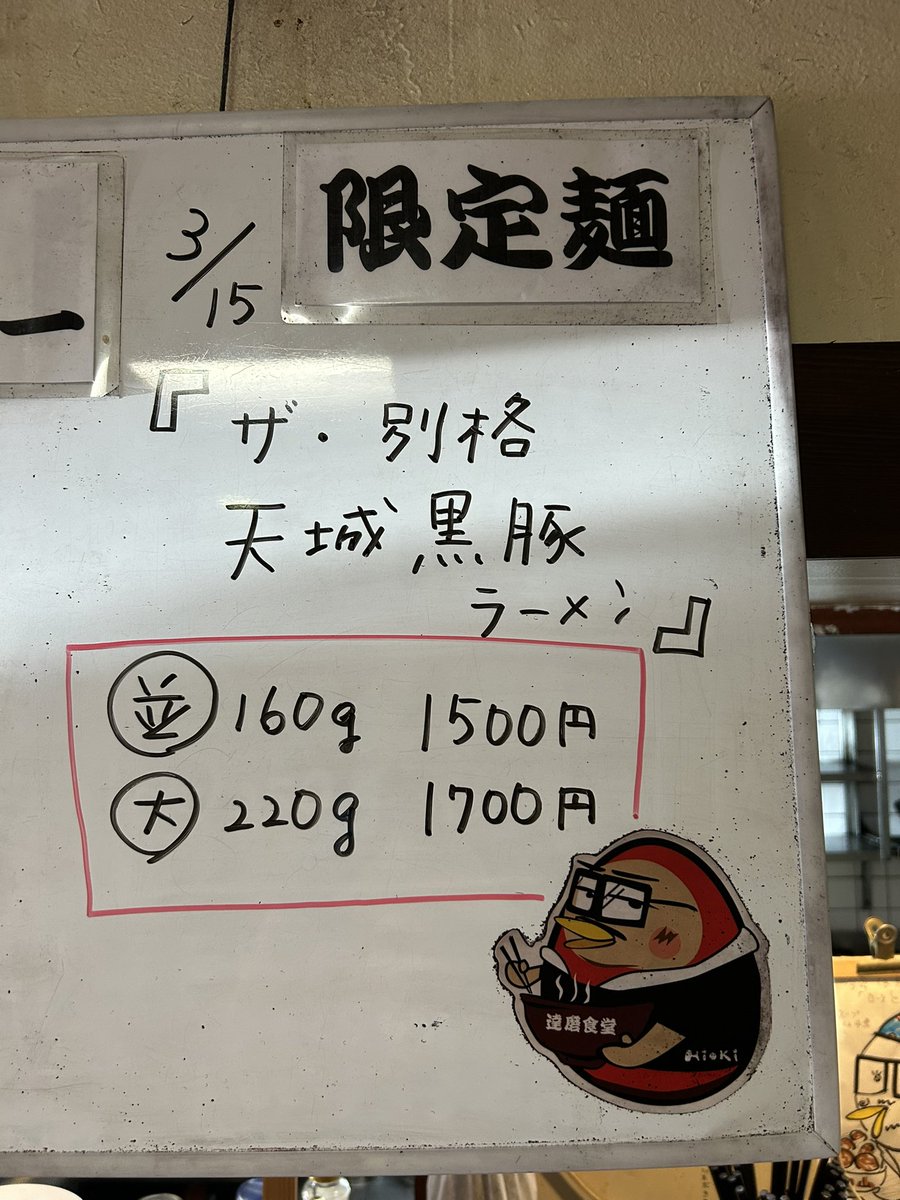 限定麺
3/15
ー
『ザ・別格
天城黒豚
ラーメン』
並 160g 1500円
大 220g 1700円
達磨食堂
HioKi